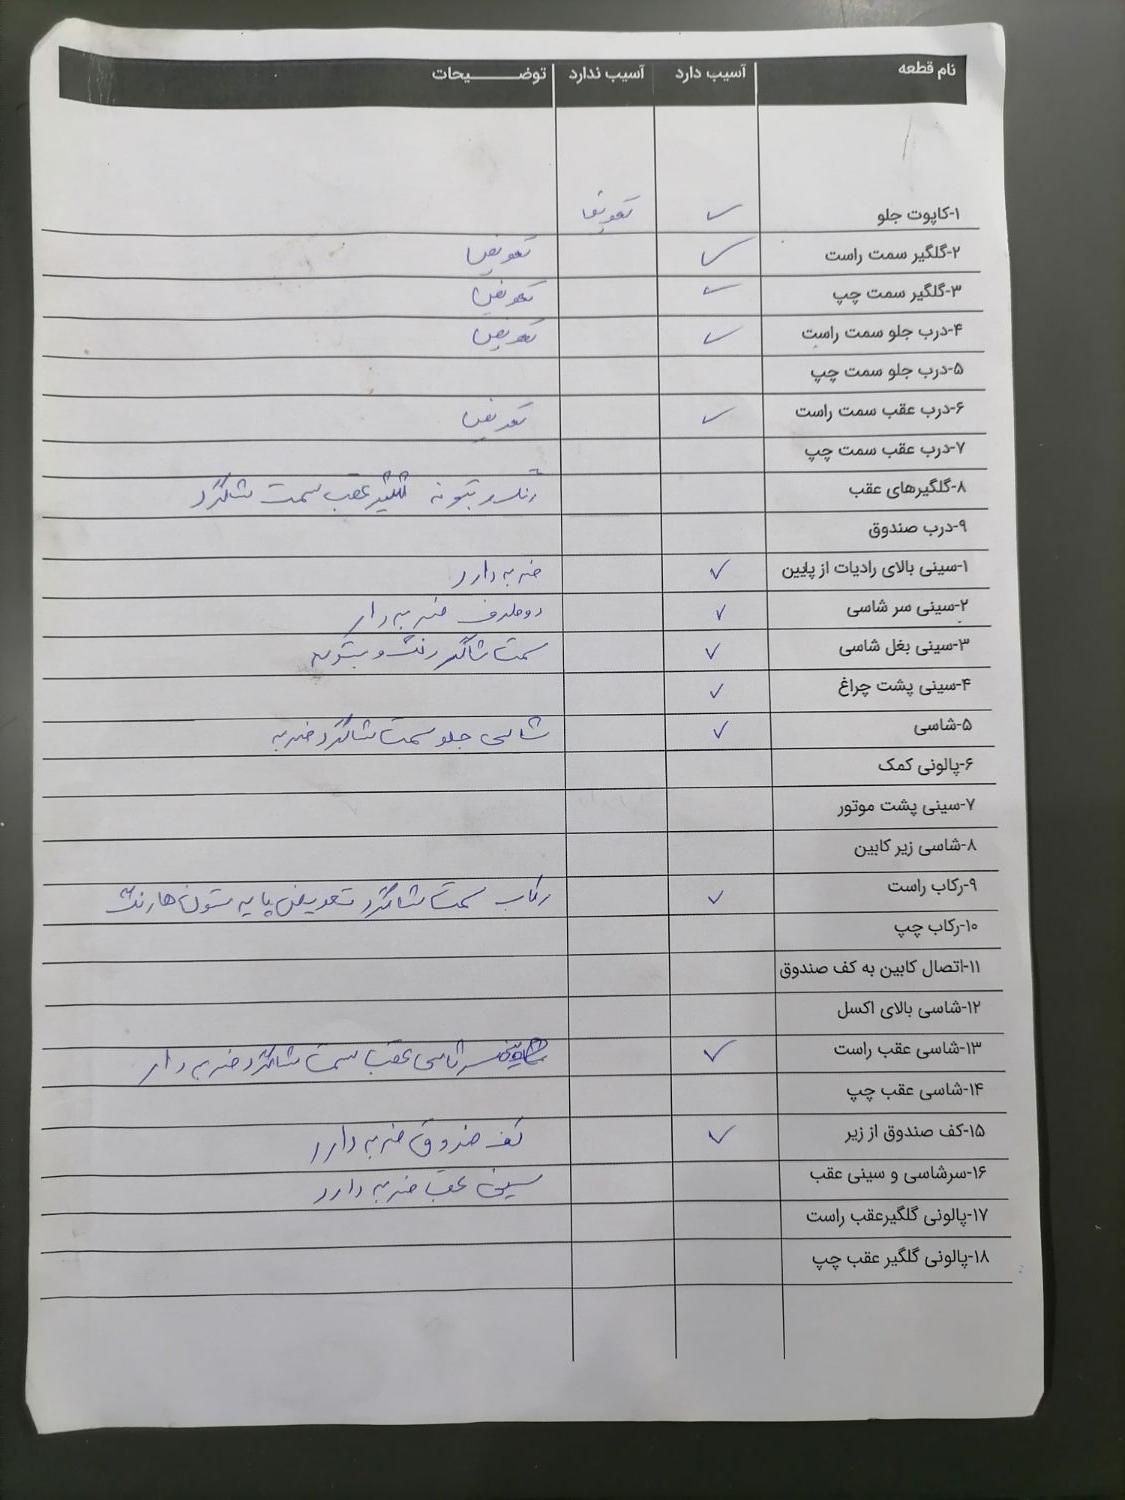 نام قطعه آسیب دارد آسیب ندارد توضیحات
۱-کاپوت جلو ✓ تعویض
۲-گلگیر سمت راست ✓ تعویض
۳-گلگیر سمت چپ ✓ تعویض
۴-درب جلو سمت راست ✓ تعویض
۵-درب جلو سمت چپ
۶-درب عقب سمت راست ✓ تعویض
۷-درب عقب سمت چپ
۸-گلگیرهای عقب رنگ و بتونه گلگیر عقب سمت شاگرد
۹-درب صندوق
۱-سینی بالای رادیات از پایین ✓ ضربه دارد
۲-سینی سر شاسی ✓ دو طرف ضربه دار
۳-سینی بغل شاسی ✓ سمت شاگرد رنگ و بتونه
۴-سینی پشت چراغ ✓
۵-شاسی ✓ شاسی جلو سمت شاگرد ضربه
۶-پالونی کمک
۷-سینی پشت موتور
۸-شاسی زیر کابین
۹-رکاب راست ✓ رکاب سمت شاگرد تعویض پایه ستون ها رنگ
۱۰-رکاب چپ
۱۱-اتصال کابین به کف صندوق
۱۲-شاسی بالای اکسل
۱۳-شاسی عقب راست ✓ سرشاسی عقب سمت شاگرد ضربه دار
۱۴-شاسی عقب چپ
۱۵-کف صندوق از زیر ✓ کف صندوق ضربه دارد
۱۶-سرشاسی و سینی عقب سینی عقب ضربه دارد
۱۷-پالونی گلگیرعقب راست
۱۸-پالونی گلگیر عقب چپ